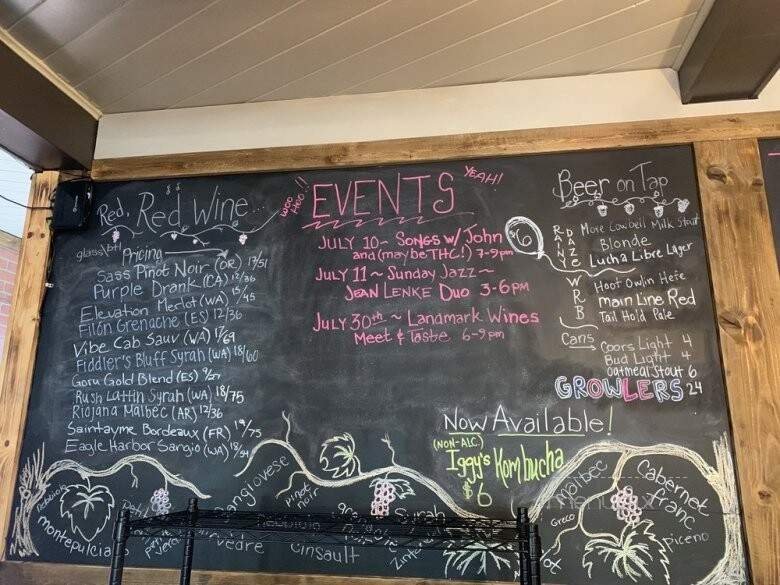 Red, Red Wine...
glass\btl
Pricing
Sass Pinot Noir (OR) 17/51
Purple Drank (CA) 12/36
Elevation Merlot (WA) 15/45
Filón Grenache (ES) 12/36
Vibe Cab Sauv (WA) 17/69
Fiddler's Bluff Syrah (WA) 18/60
Goru Gold Blend (ES) 9/27
Rush Lattin Syrah (WA) 18/75
Riojana Malbec (AR) 12/36
Saintayme Bordeaux (FR) 19/75
Eagle Harbor Sangio (WA) 18/54
Woo Hoo!!
EVENTS
YEAH!
JULY 10~ SONGS W/ John
and (maybe THC!) 7-9pm
JULY 11 ~ Sunday Jazz ~
JEAN LENKE DUO 3-6PM
JULY 30th ~ Landmark Wines
Meet & Taste 6-9pm
Now Available!
(NON-ALC.)
Iggy's Kombucha
$6
Beer on Tap
$6
RANY
DAZE
More Cowbell Milk Stout
Blonde
Lucha Libre Lager
WRB
Hoot Owlin Hefe
main Line Red
Tail Hold Pale
Cans
Coors Light 4
Bud Light 4
oatmeal Stout 6
GROWLERS 24
Nebbiolo
montepulcia
Sangiovese
pinot noir
vedre
cinsault
Syrah
malbec
Greco
Cabernet franc
piceno